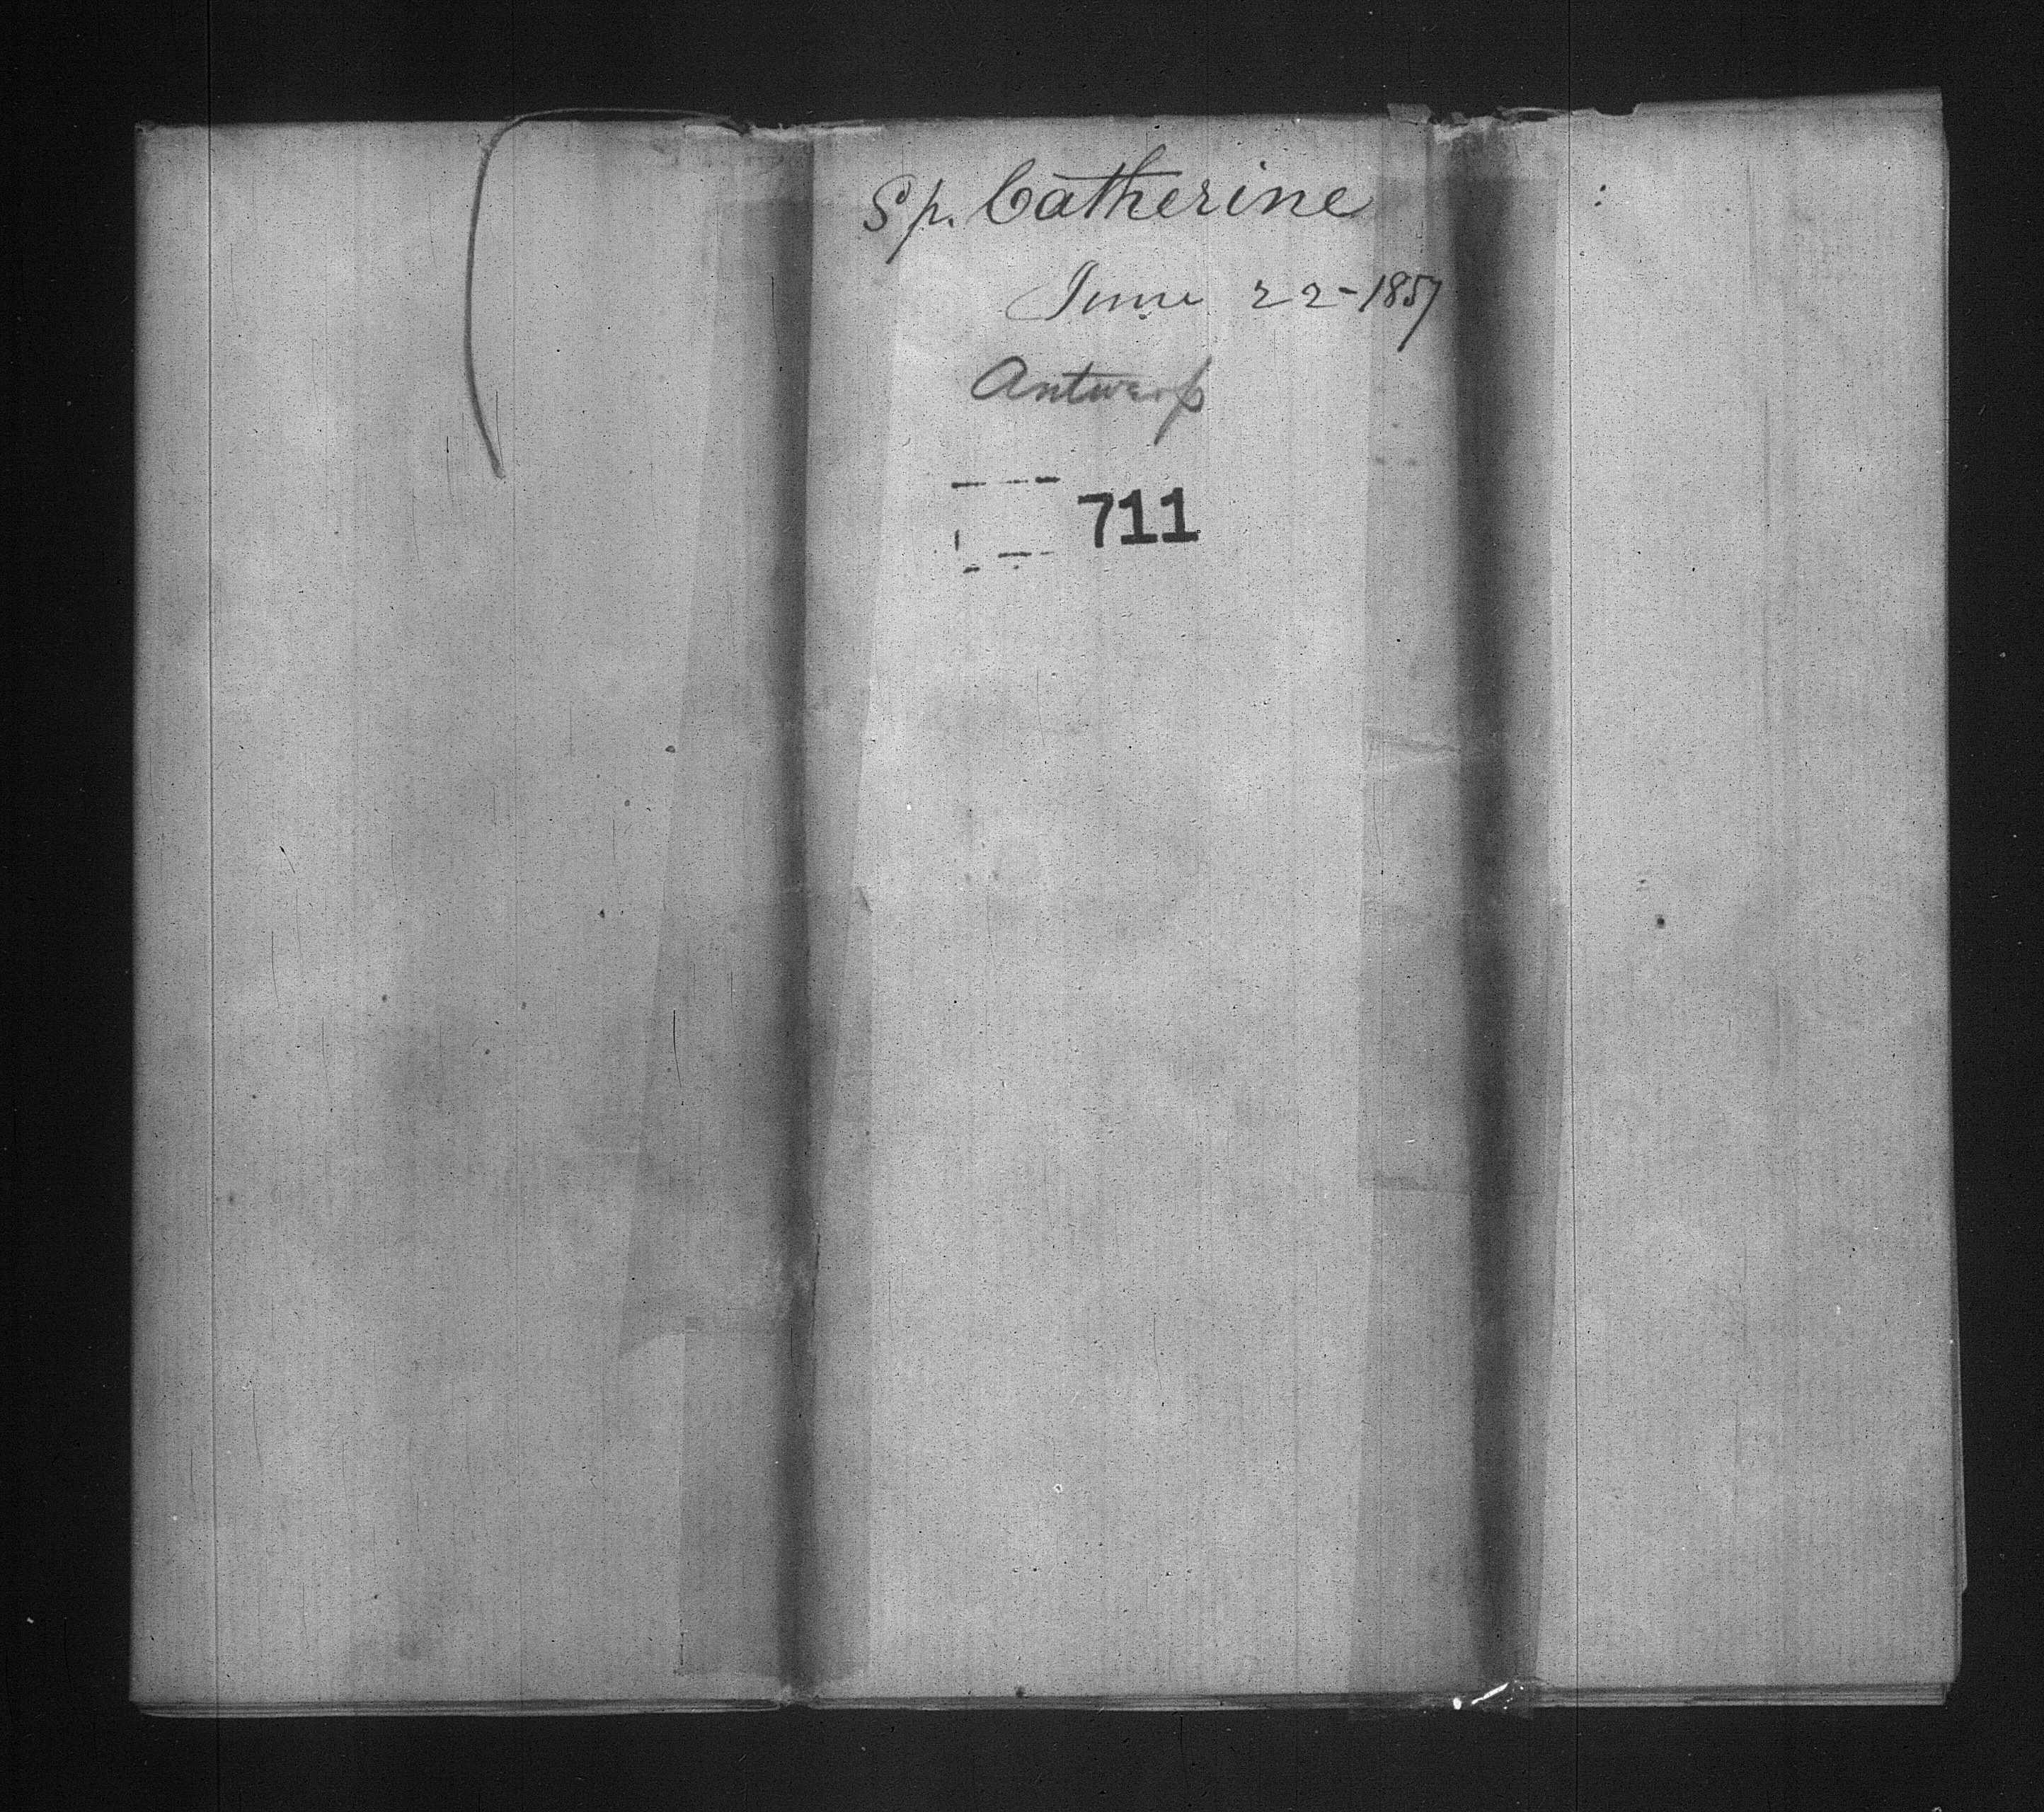 Sp. Catherine
June 22-1857
Antwerp
711